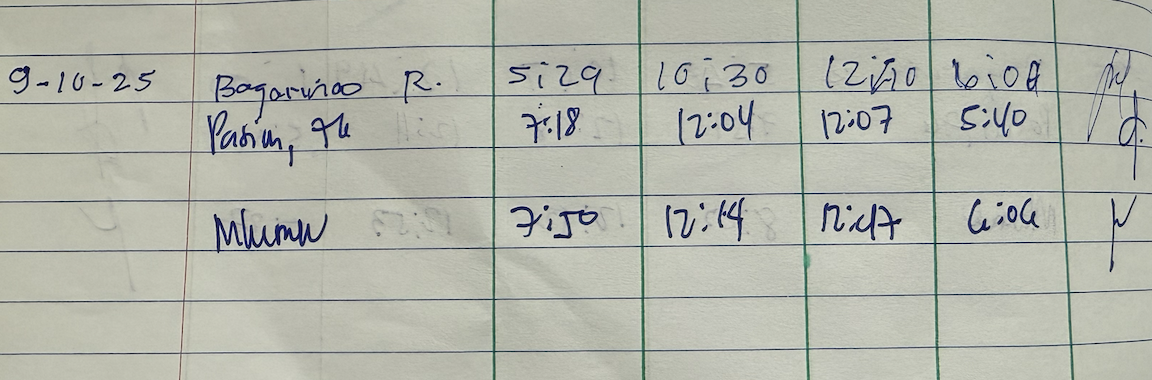 9-10-25 Bagarinao R. 5:29 10:30 12:10 6:08
7:18 12:04 12:07 5:40
7:50 12:14 12:47 6:06